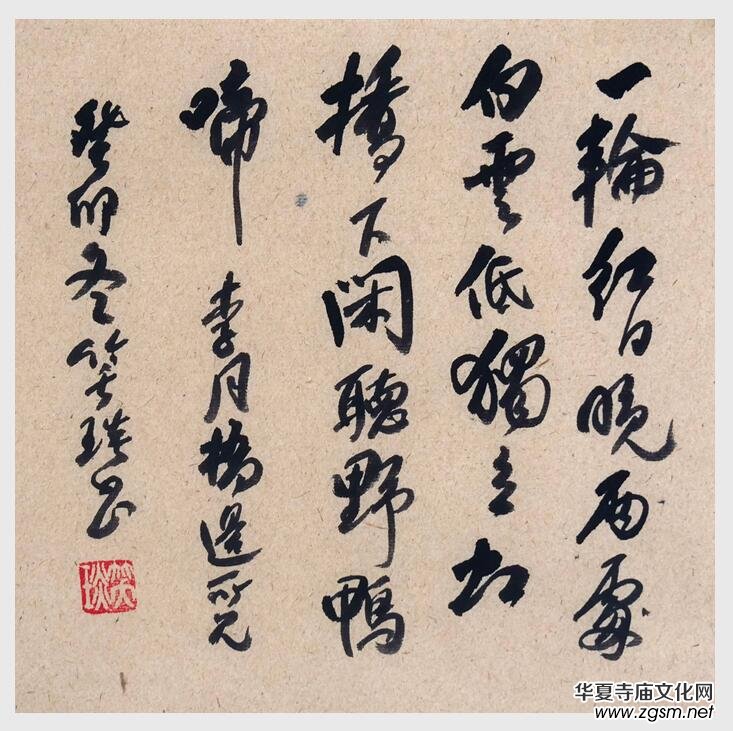 一輪紅日晚雨
白雲低獨立虹
橋下閑聽野鴨
啼
李月橋邊所見
癸卯冬笑書
华夏寺庙文化网
www.zgsm.net